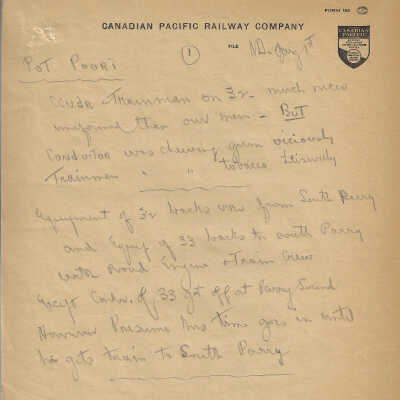 FORM 162
CANADIAN PACIFIC RAILWAY COMPANY
CANADIAN PACIFIC
1
FILE
POT POORI
Condr Trainman on 32 - much more
informed than our men - BUT
Conductor was chewing gum viciously
Trainmen " " tobacco leisurely
Equipment of 32 backs over from South Parry
and Equip of 33 backs to South Parry
with road Engine & Train Crew
Except Condr. of 33 get off at Parry Sound
However Presume his time goes in until
he gets train to South Parry